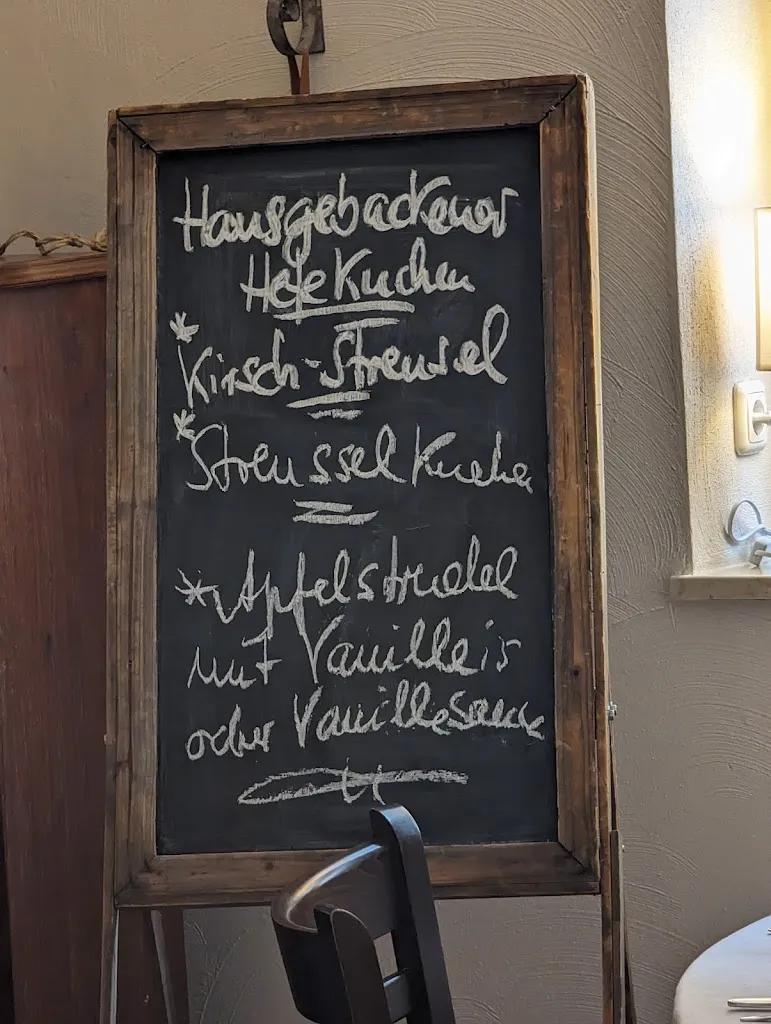 Hausgebackener
HefeKuchen
* Kirsch-Streusel
* StreusselKuchen
* Apfelstrudel
mit Vanilleis
oder Vanillesauce